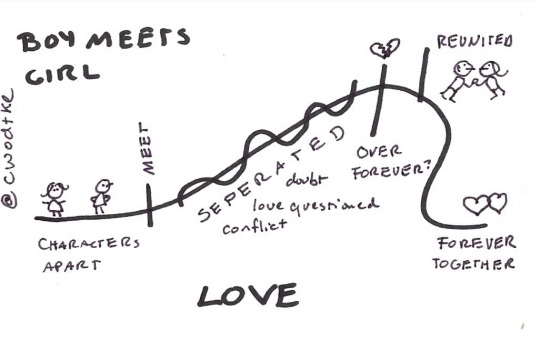 BOY MEETS
GIRL
@cwodtke
CHARACTERS
APART
MEET
SEPERATED
doubt
love questioned
conflict
OVER
FOREVER?
REUNITED
FOREVER
TOGETHER
LOVE